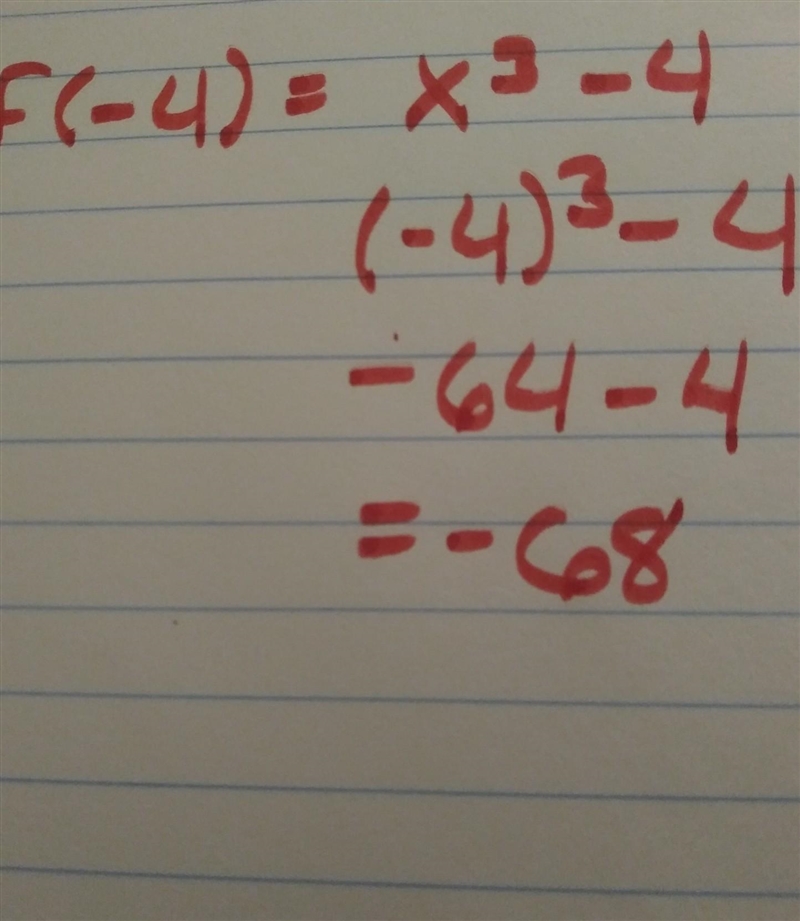 f(-4) = x³ - 4
(-4)³ - 4
- 64 - 4
= - 68